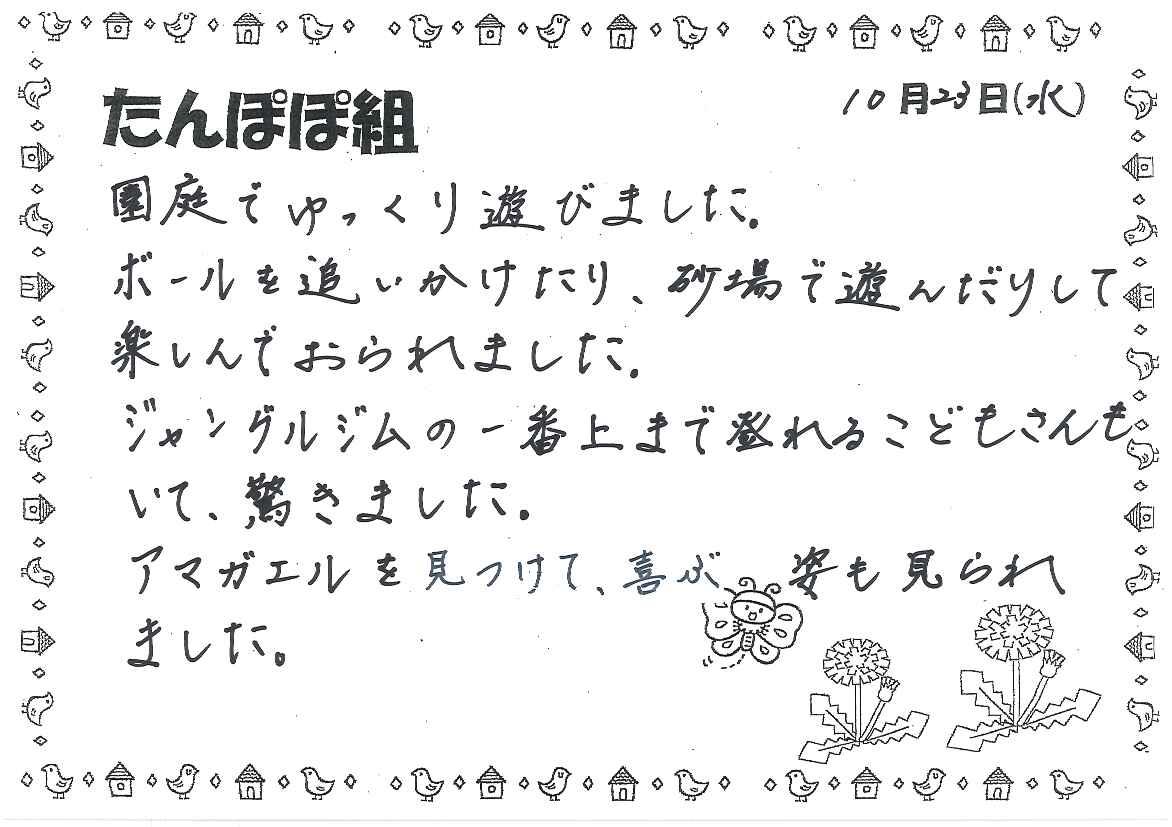 たんぽぽ組
10月23日(水)
園庭でゆっくり遊びました。
ボールを追いかけたり、砂場で遊んだりして
楽しんでおられました。
ジャングルジムの一番上まで登れるこどもさんも
いて、驚きました。
アマガエルを見つけて、喜ぶ 姿も見られ
ました。